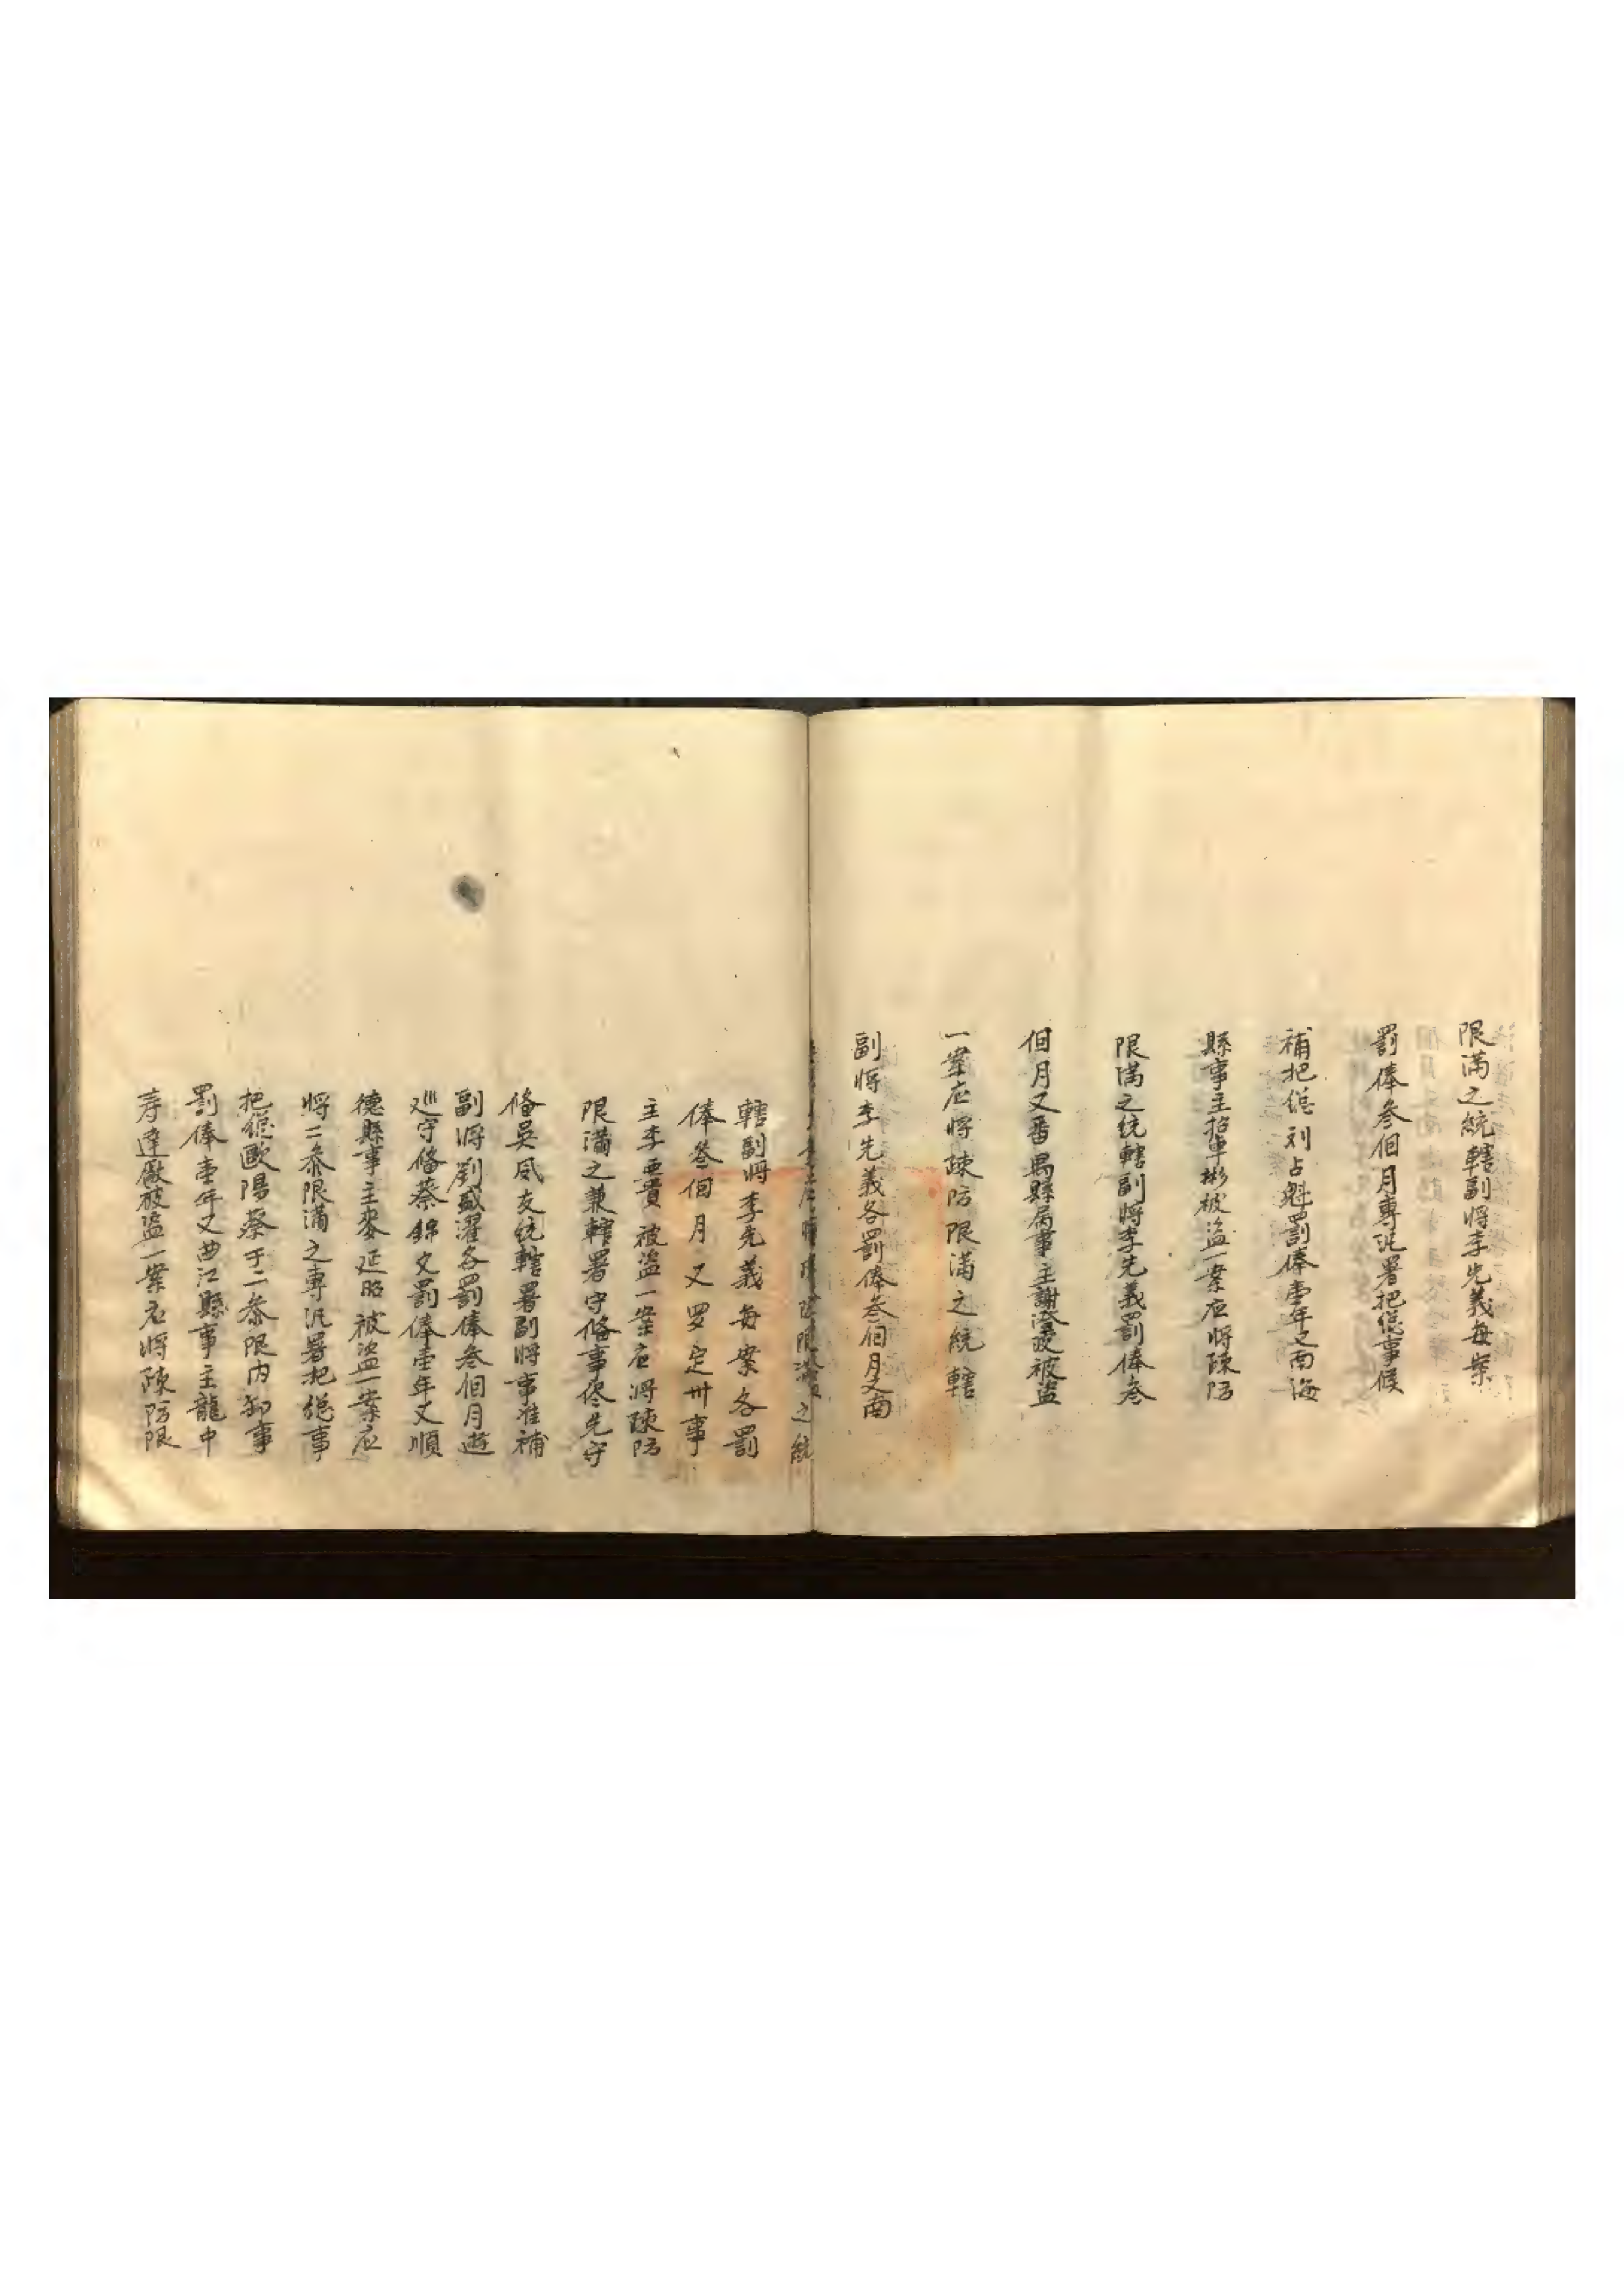 限滿之統轄副將李先義每案
罰俸叁個月專汛署把總事候
補把總刘占魁罰俸壹年又南海
縣事主招車彬被盜一案應将疎防
限滿之統轄副將李先義罰俸叁
個月又番禺縣屬事主謝澄波被盜
一案应將疎防限滿之統轄
副將李先義各罰俸叁個月又南
限滿之統
轄副將李先義每案各罰
俸叁個月又罗定卅事
主李要貴被盜一案应將疎防
限滿之兼轄署守俻事侭先守
俻吳威友统轄署副將事准補
副將劉盛濯各罰俸叁個月遊
巡守俻蔡錦文罰俸壹年又順
德縣事主麥延昭被盜一案应
將二叅限滿之專汛署把總事
把總歐陽蔡于二叅限内卸事
罰俸壹年又曲江縣事主龍中
壽達廠被盜一案应將疎防限